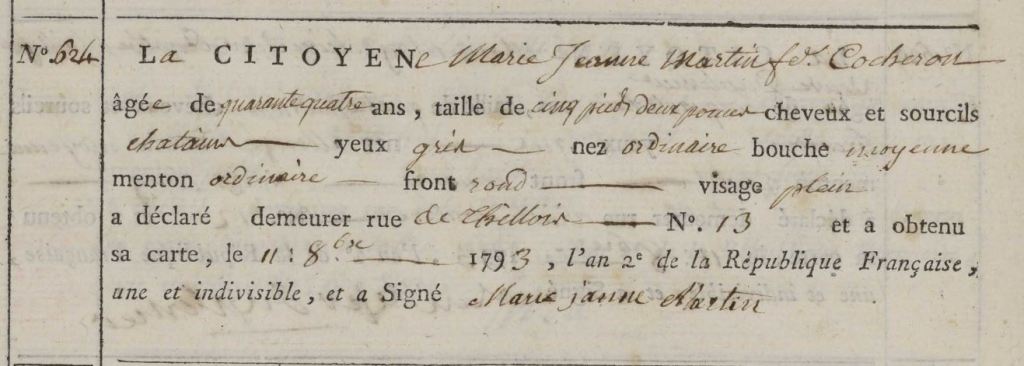 No. 624 La CITOYENe Marie Jeanne Martin fe. Cocheron
âgée de quarante quatre ans, taille de cinq pieds deux pouces cheveux et sourcils
chatains yeux gris nez ordinaire bouche moyenne
menton ordinaire front rond visage plein
a déclaré demeurer rue de No. 13 et a obtenu
sa carte, le 11. 8bre 1793, l'an 2e de la République Française,
une et indivisible, et a Signé Marie janne Martin